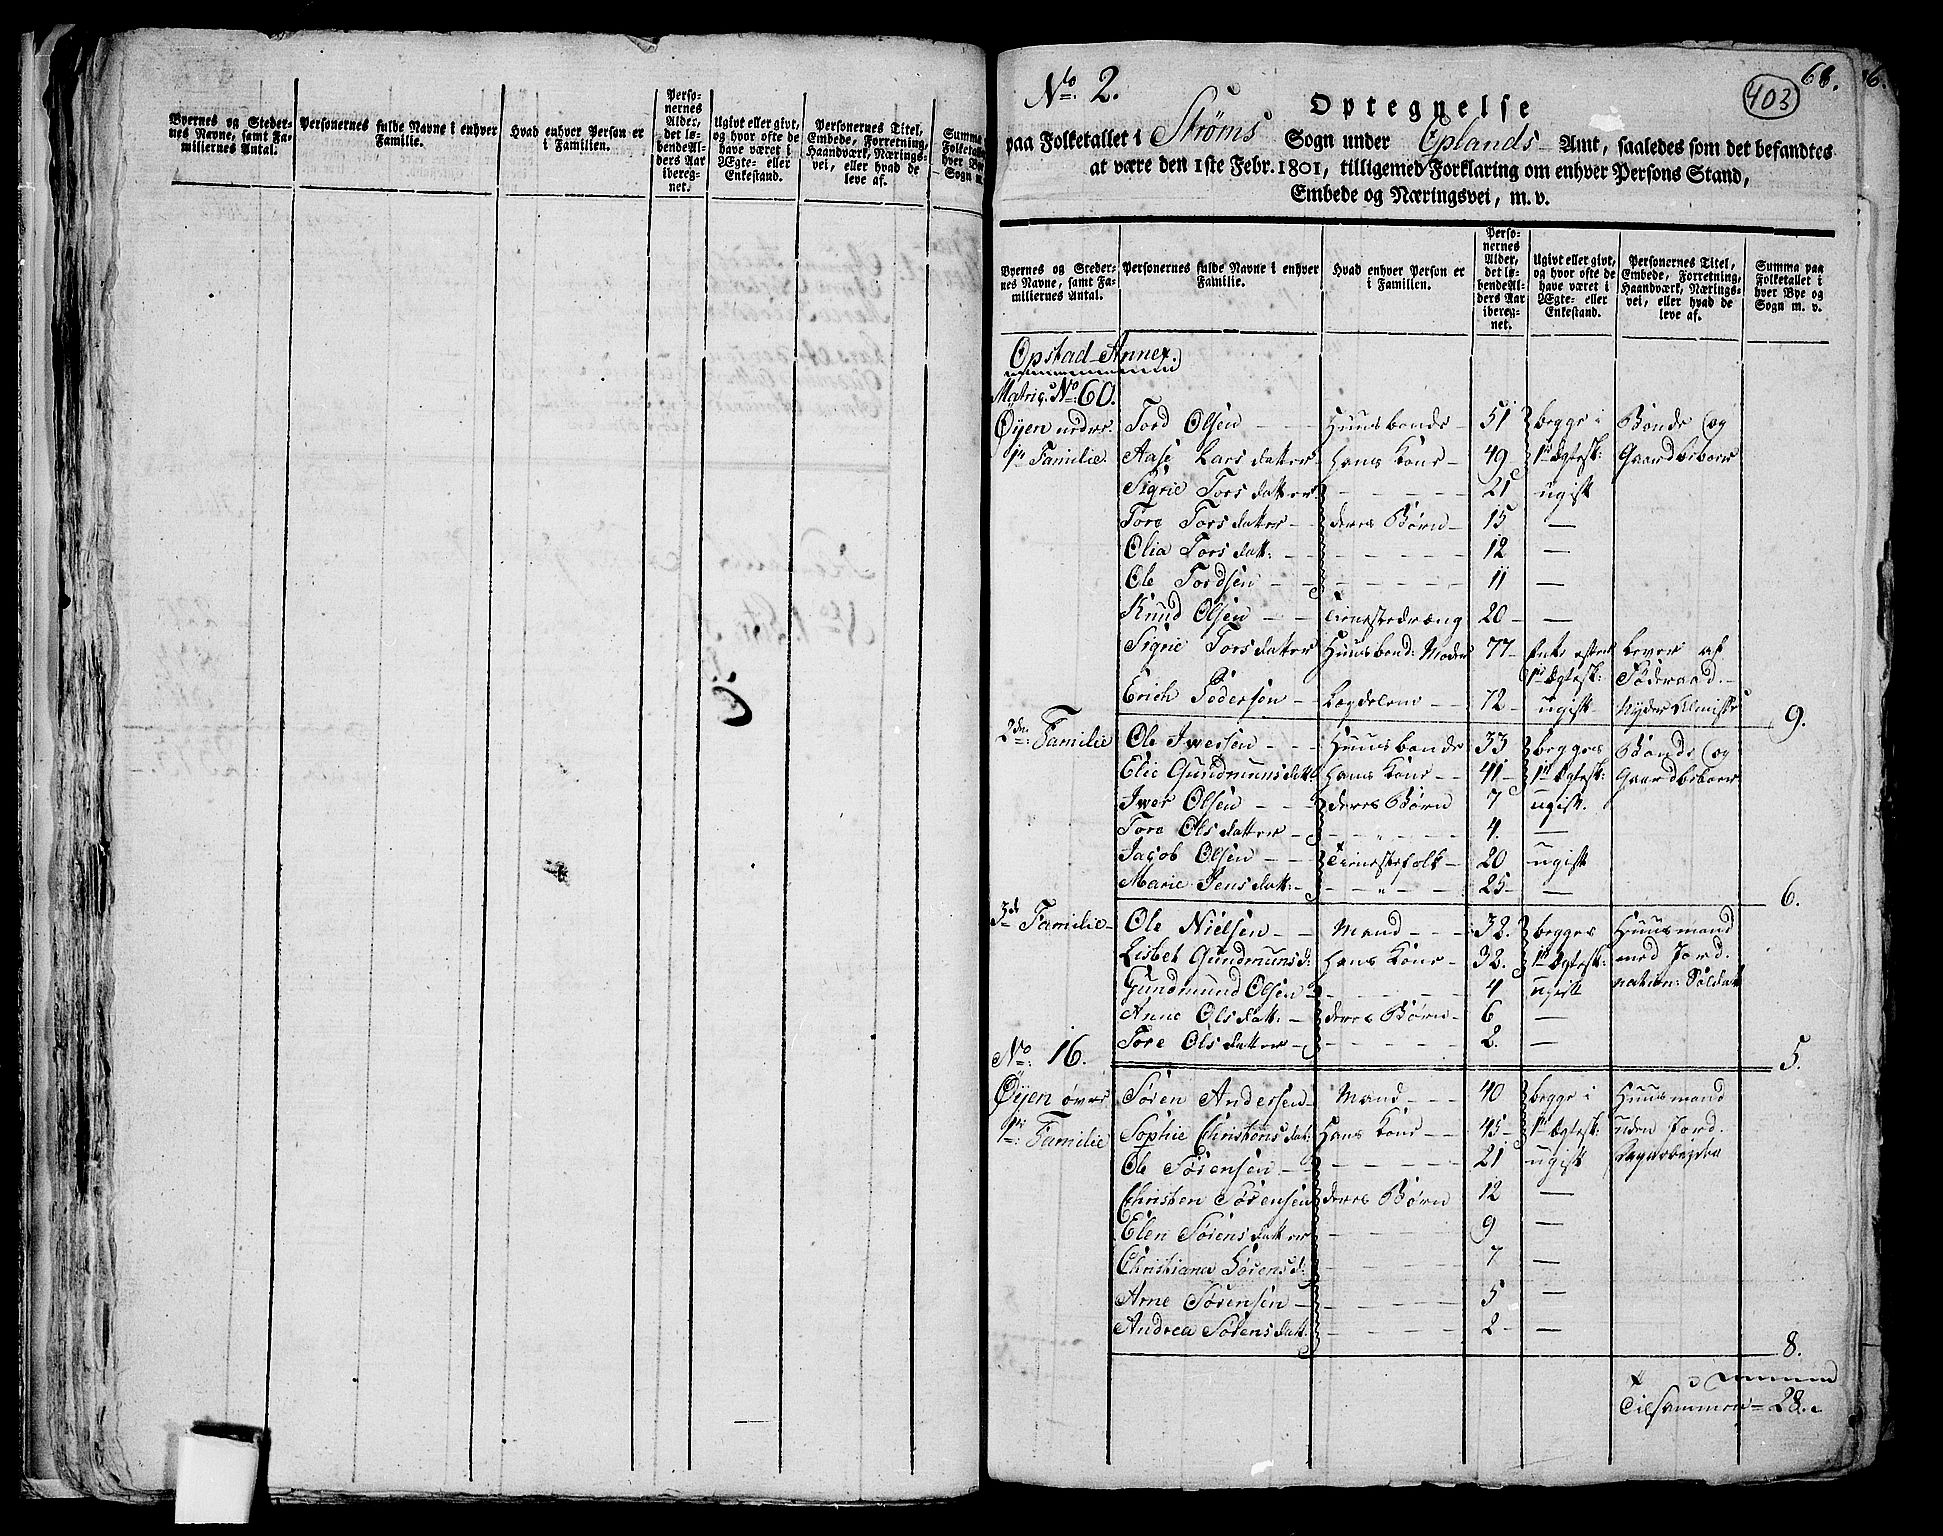 Byernes og Steder-
nes Navne, samt Fa-
miliernes Antal.
Personernes fulde Navne i enhver
Familie.
Hvad enhver Person er
i Familien.
Perso-
nernes
Alder,
det lø-
bende Al-
ders Aar
iberegnet.
Ugivt eller givt,
og hvor ofte de
have været i
Ægte- eller
Enkestand.
Personernes Titel,
Embede, Forretning,
Haandværk, Nærings-
vei, eller hvad de
leve af.
Summa
Folketallet
hver Bye
Sogn m.
No. 2.
403
68.
6.
Optegnelse
paa Folketallet i Strøms Sogn under Oplands Amt, saaledes som det befandtes
at være den 1ste Febr. 1801, tilligemed Forklaring om enhver Persons Stand,
Embede og Næringsvei, m.v.
Byernes og Steder-
nes Navne, samt Fa-
miliernes Antal.
Personernes fulde Navne i enhver
Familie.
Hvad enhver Person er
i Familien.
Perso-
nernes
Alder,
det lø-
bende Al-
ders Aar
ibereg-
net.
Ugivt eller givt,
og hvor ofte de
have været i
Ægte- eller
Enkestand.
Personernes Titel,
Embede, Forretning,
Haandværk, Nærings-
vei, eller hvad de
leve af.
Summa paa
Folketallet i
hver Bye og
Sogn m. v.
Opstad Annex.
Matric. No. 60.
Øyen nedre Tord Olsen - - Huusbonde 51 begge i Bonde og
1te Familie. Aase Lars datter hans Kone 49 1te Ægtesk: Gaardbeboer
Sigrie Tors datter - - - 21 ugift
Tore Tors datter - deres Børn 15 —
Olia Tors datt: - - - 12 —
Ole Tordsen - - - 11 —
Knud Olsen - - Tienestedræng 20 —
Sigrie Tors datter Huusbond: Moder 77 Enke efter Lever af
1te Ægtesk: Føderaad.
Erich Pedersen - Lægdslem 72 ugift Nyder Almisse 9.
2den Familie Ole Iversen - - Huusbonde 33 begges Bonde og
Elie Gundmunsdatt: hans Kone 41 1te Ægtesk: Gaardbeboer
Iver Olsen - - deres Børn 7 ugift
Tore Olsdatter - - „ - 4. —
Jacob Olsen - - Tienestefolk 20 ugift
Marie Jensdatt: - - „ - 25 — 6.
3de Familie Ole Nielsen - Mand - - 32. begges Huusmand
Lisbet Gundmunsd: hans Kone 32. 1te Ægtesk: med Jord.
Gundmund Olsen - - - 4 ugift nation: Soldat
Anne Olsdatt: - deres Børn 6 —
Tore Olsdatter - - - 2. — 5.
No. 16.
Øyen øvre Søren Andersen Mand - - 40 begge i Huusmand
1te Familie Sophie Christens dat: hans Kone 45 1te Ægtesk: uden Jord.
Ole Sørensen - - 21 ugift
Christen Sørensen deres Børn 12 —
Elen Sørens datter - - 9 —
Christiana Sørensd: - - 7 —
Arne Sørensen - - 5 —
Andrea Sørensdatt: - - 2 — 8.
Tilsammen 28.